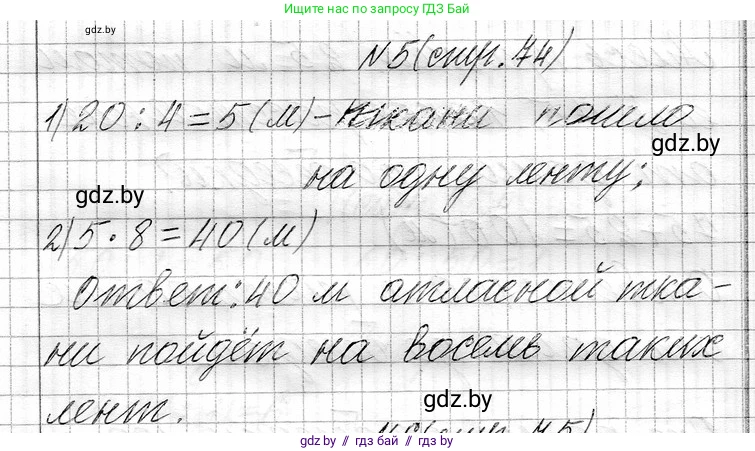 Присоединяйтесь к нам, Ищите нас только по запросу ГДЗ Бай
gdz.by
№5 (стр. 74)
1) 20 : 4 = 5 (м) - ткани пошло
gdz.by
на одну ленту;
gdz.by
2) 5 · 8 = 40 (м)
Ответ: 40 м атласной тка-
ни пойдёт на восемь таких
gdz.by
лент.
gdz.by // гдз бай // gdz.by